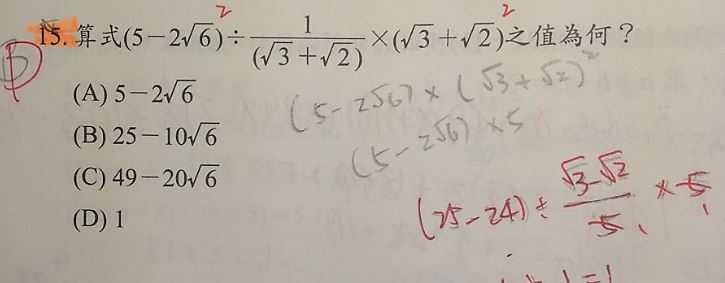 B
15. 算式(5－2√6)²÷1/(√3＋√2)×(√3＋√2)²之值為何？
(A) 5－2√6
(B) 25－10√6
(C) 49－20√6
(D) 1
(5-2√6)×(√3+√2)²
(5-2√6)×5
(25-24)÷(√3-√2)/5×5